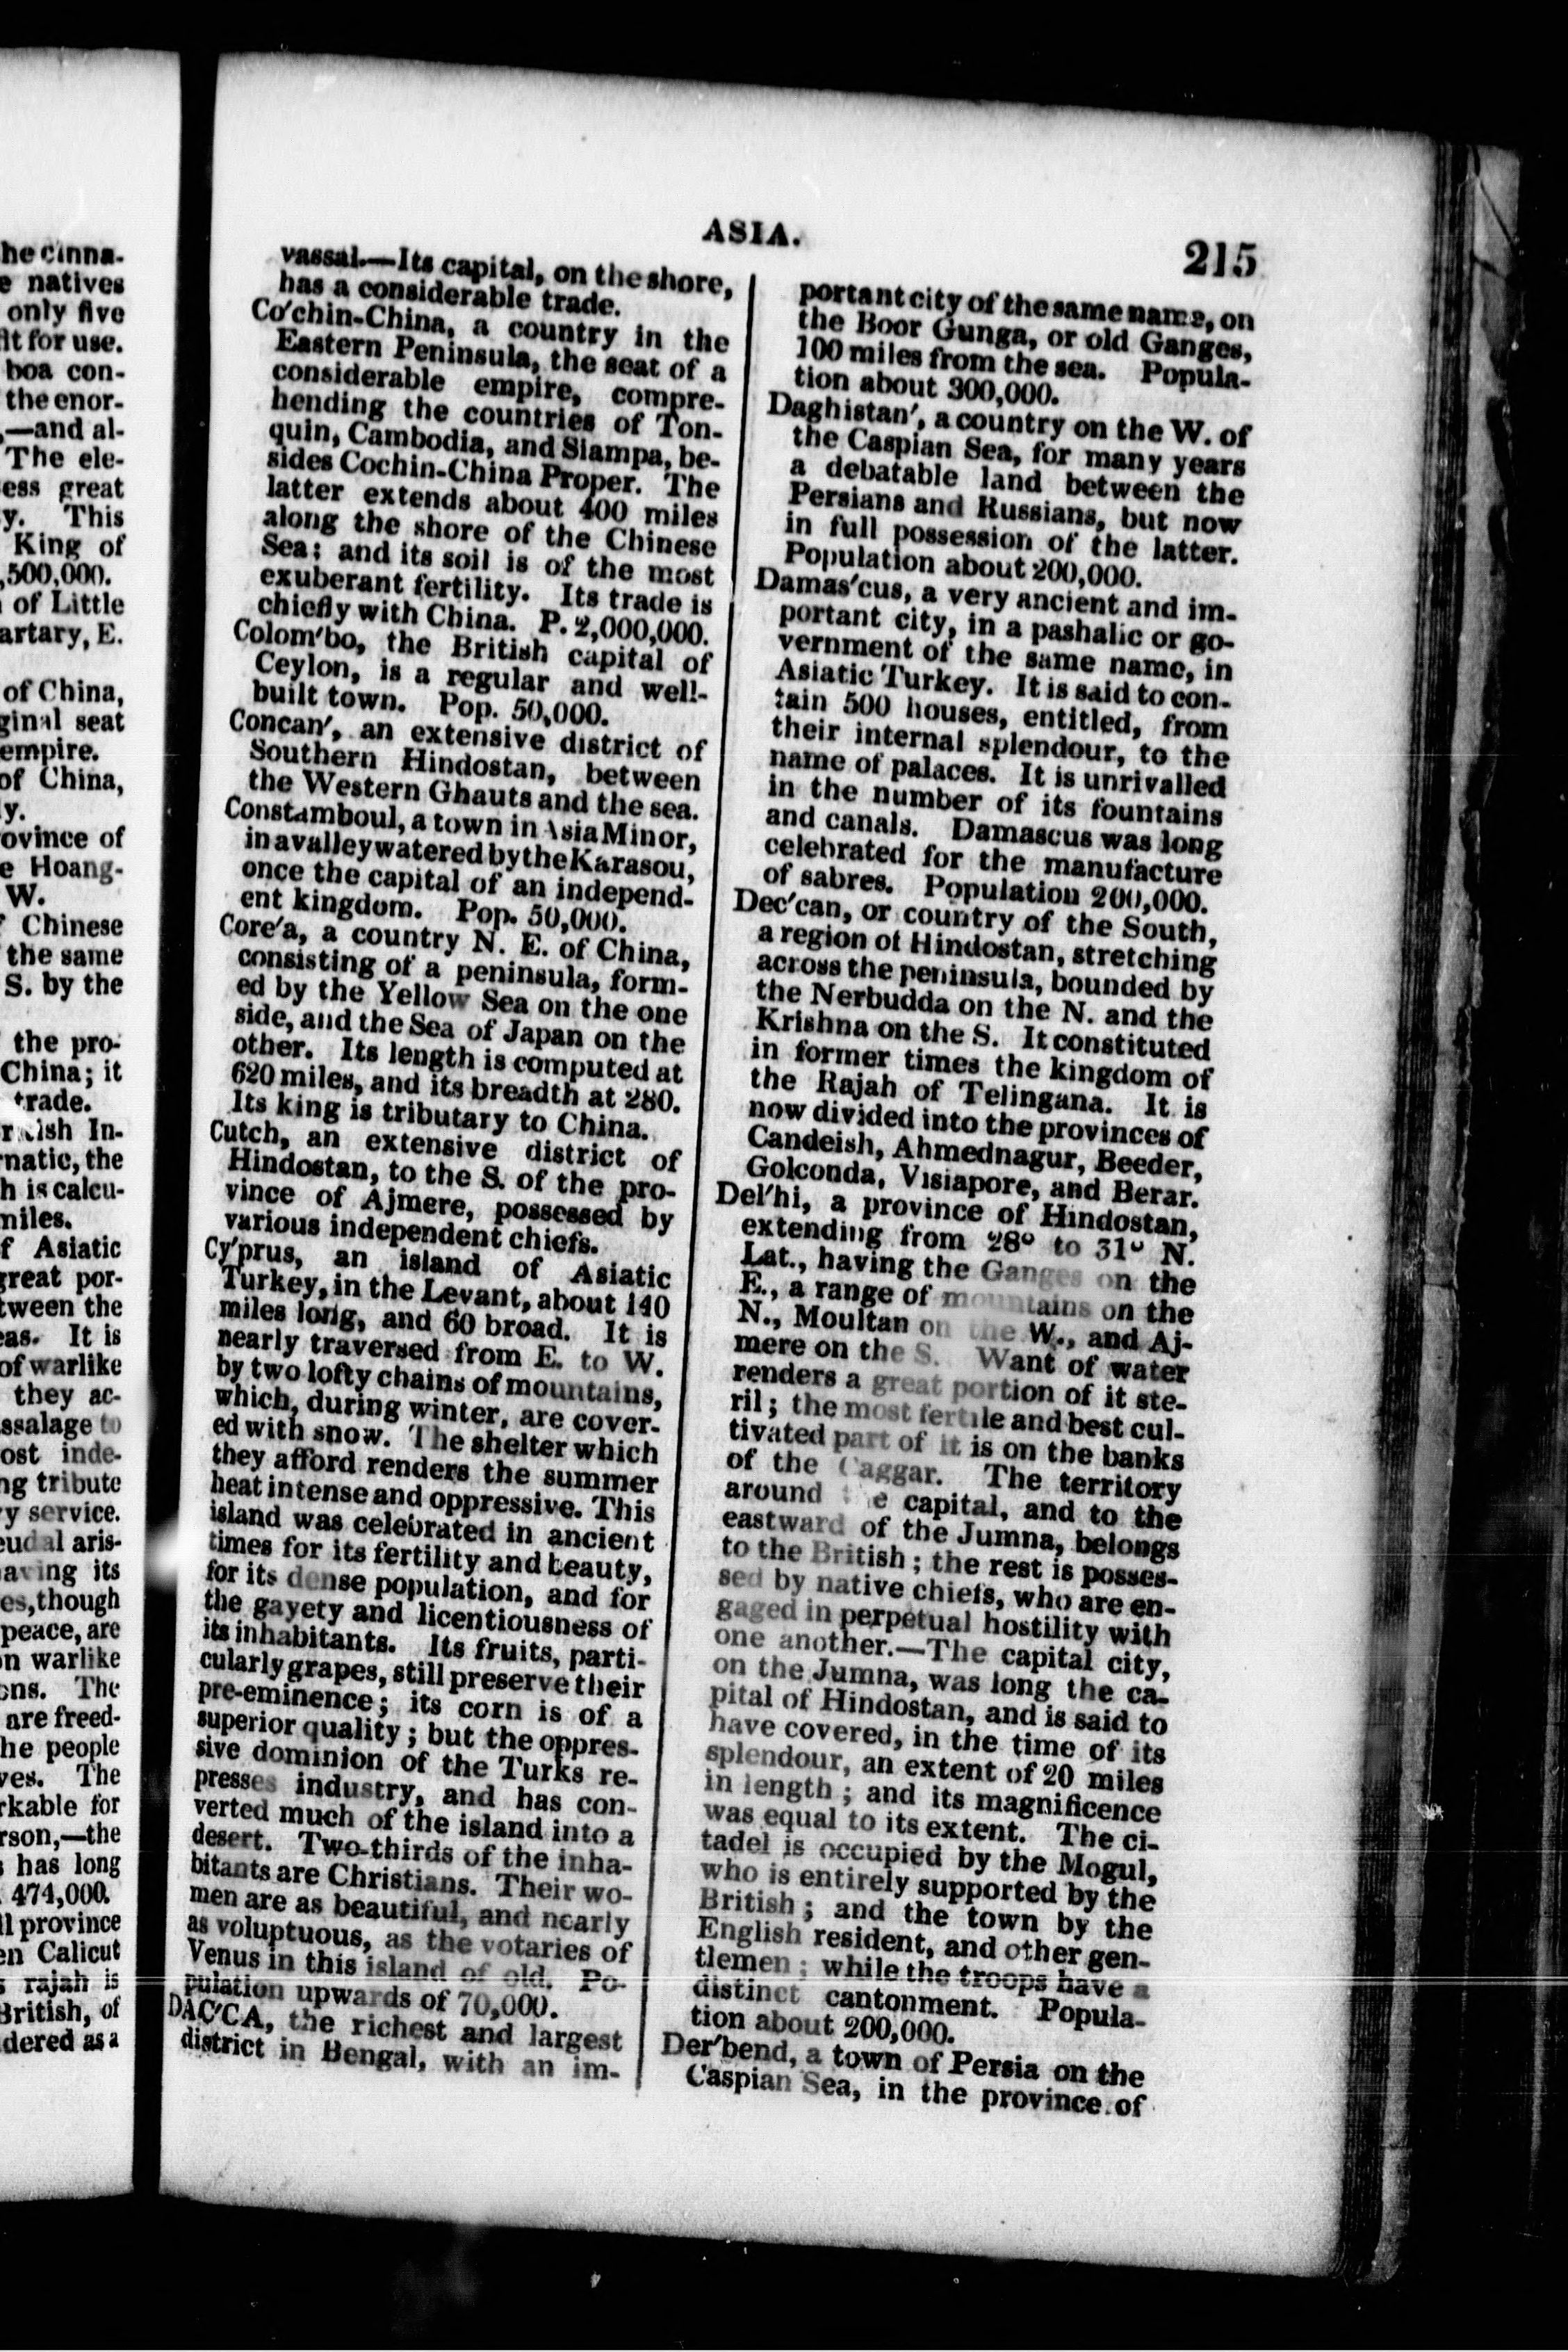 he cinna-
e natives
only five
fit for use.
boa con-
the enor-
,—and al-
The ele-
ess great
y. This
King of
,500,000.
of Little
artary, E.
of China,
ginal seat
empire.
of China,
ly.
ovince of
e Hoang-
W.
Chinese
the same
S. by the
the pro-
China; it
trade.
In-
natic, the
h is calcu-
miles.
f Asiatic
great por-
tween the
eas. It is
of warlike
they ac-
ssalage to
ost inde-
ng tribute
y service.
eudal aris-
aving its
es, though
peace, are
on warlike
ons. The
are freed-
he people
ves. The
rkable for
rson,—the
s has long
474,000.
ll province
en Calicut
s rajah is
British, of
dered as a
ASIA.
215
vassal.—Its capital, on the shore,
has a considerable trade.
Co'chin-China, a country in the
Eastern Peninsula, the seat of a
considerable empire, compre-
hending the countries of Ton-
quin, Cambodia, and Siampa, be-
sides Cochin-China Proper. The
latter extends about 400 miles
along the shore of the Chinese
Sea; and its soil is of the most
exuberant fertility. Its trade is
chiefly with China. P. 2,000,000.
Colom'bo, the British capital of
Ceylon, is a regular and well-
built town. Pop. 50,000.
Concan', an extensive district of
Southern Hindostan, between
the Western Ghauts and the sea.
Constamboul, a town in Asia Minor,
in a valley watered by the Karasou,
once the capital of an independ-
ent kingdom. Pop. 50,000.
Core'a, a country N. E. of China,
consisting of a peninsula, form-
ed by the Yellow Sea on the one
side, and the Sea of Japan on the
other. Its length is computed at
620 miles, and its breadth at 280.
Its king is tributary to China.
Cutch, an extensive district of
Hindostan, to the S. of the pro-
vince of Ajmere, possessed by
various independent chiefs.
Cy'prus, an island of Asiatic
Turkey, in the Levant, about 140
miles long, and 60 broad. It is
nearly traversed from E. to W.
by two lofty chains of mountains,
which, during winter, are cover-
ed with snow. The shelter which
they afford renders the summer
heat intense and oppressive. This
island was celebrated in ancient
times for its fertility and beauty,
for its dense population, and for
the gayety and licentiousness of
its inhabitants. Its fruits, parti-
cularly grapes, still preserve their
pre-eminence; its corn is of a
superior quality; but the oppres-
sive dominion of the Turks re-
presses industry, and has con-
verted much of the island into a
desert. Two-thirds of the inha-
bitants are Christians. Their wo-
men are as beautiful, and nearly
as voluptuous, as the votaries of
Venus in this island of old. Po-
pulation upwards of 70,000.
DAC'CA, the richest and largest
district in Bengal, with an im-
portant city of the same name, on
the Boor Gunga, or old Ganges,
100 miles from the sea. Popula-
tion about 300,000.
Daghistan', a country on the W. of
the Caspian Sea, for many years
a debatable land between the
Persians and Russians, but now
in full possession of the latter.
Population about 200,000.
Damas'cus, a very ancient and im-
portant city, in a pashalic or go-
vernment of the same name, in
Asiatic Turkey. It is said to con-
tain 500 houses, entitled, from
their internal splendour, to the
name of palaces. It is unrivalled
in the number of its fountains
and canals. Damascus was long
celebrated for the manufacture
of sabres. Population 200,000.
Dec'can, or country of the South,
a region of Hindostan, stretching
across the peninsula, bounded by
the Nerbudda on the N. and the
Krishna on the S. It constituted
in former times the kingdom of
the Rajah of Telingana. It is
now divided into the provinces of
Candeish, Ahmednagur, Beeder,
Golconda, Visiapore, and Berar.
Del'hi, a province of Hindostan,
extending from 28° to 31° N.
Lat., having the Ganges on the
E., a range of mountains on the
N., Moultan on the W., and Aj-
mere on the S. Want of water
renders a great portion of it ste-
ril; the most fertile and best cul-
tivated part of it is on the banks
of the Caggar. The territory
around the capital, and to the
eastward of the Jumna, belongs
to the British; the rest is posses-
sed by native chiefs, who are en-
gaged in perpetual hostility with
one another.—The capital city,
on the Jumna, was long the ca-
pital of Hindostan, and is said to
have covered, in the time of its
splendour, an extent of 20 miles
in length; and its magnificence
was equal to its extent. The ci-
tadel is occupied by the Mogul,
who is entirely supported by the
British; and the town by the
English resident, and other gen-
tlemen; while the troops have a
distinct cantonment. Popula-
tion about 200,000.
Der'bend, a town of Persia on the
Caspian Sea, in the province of